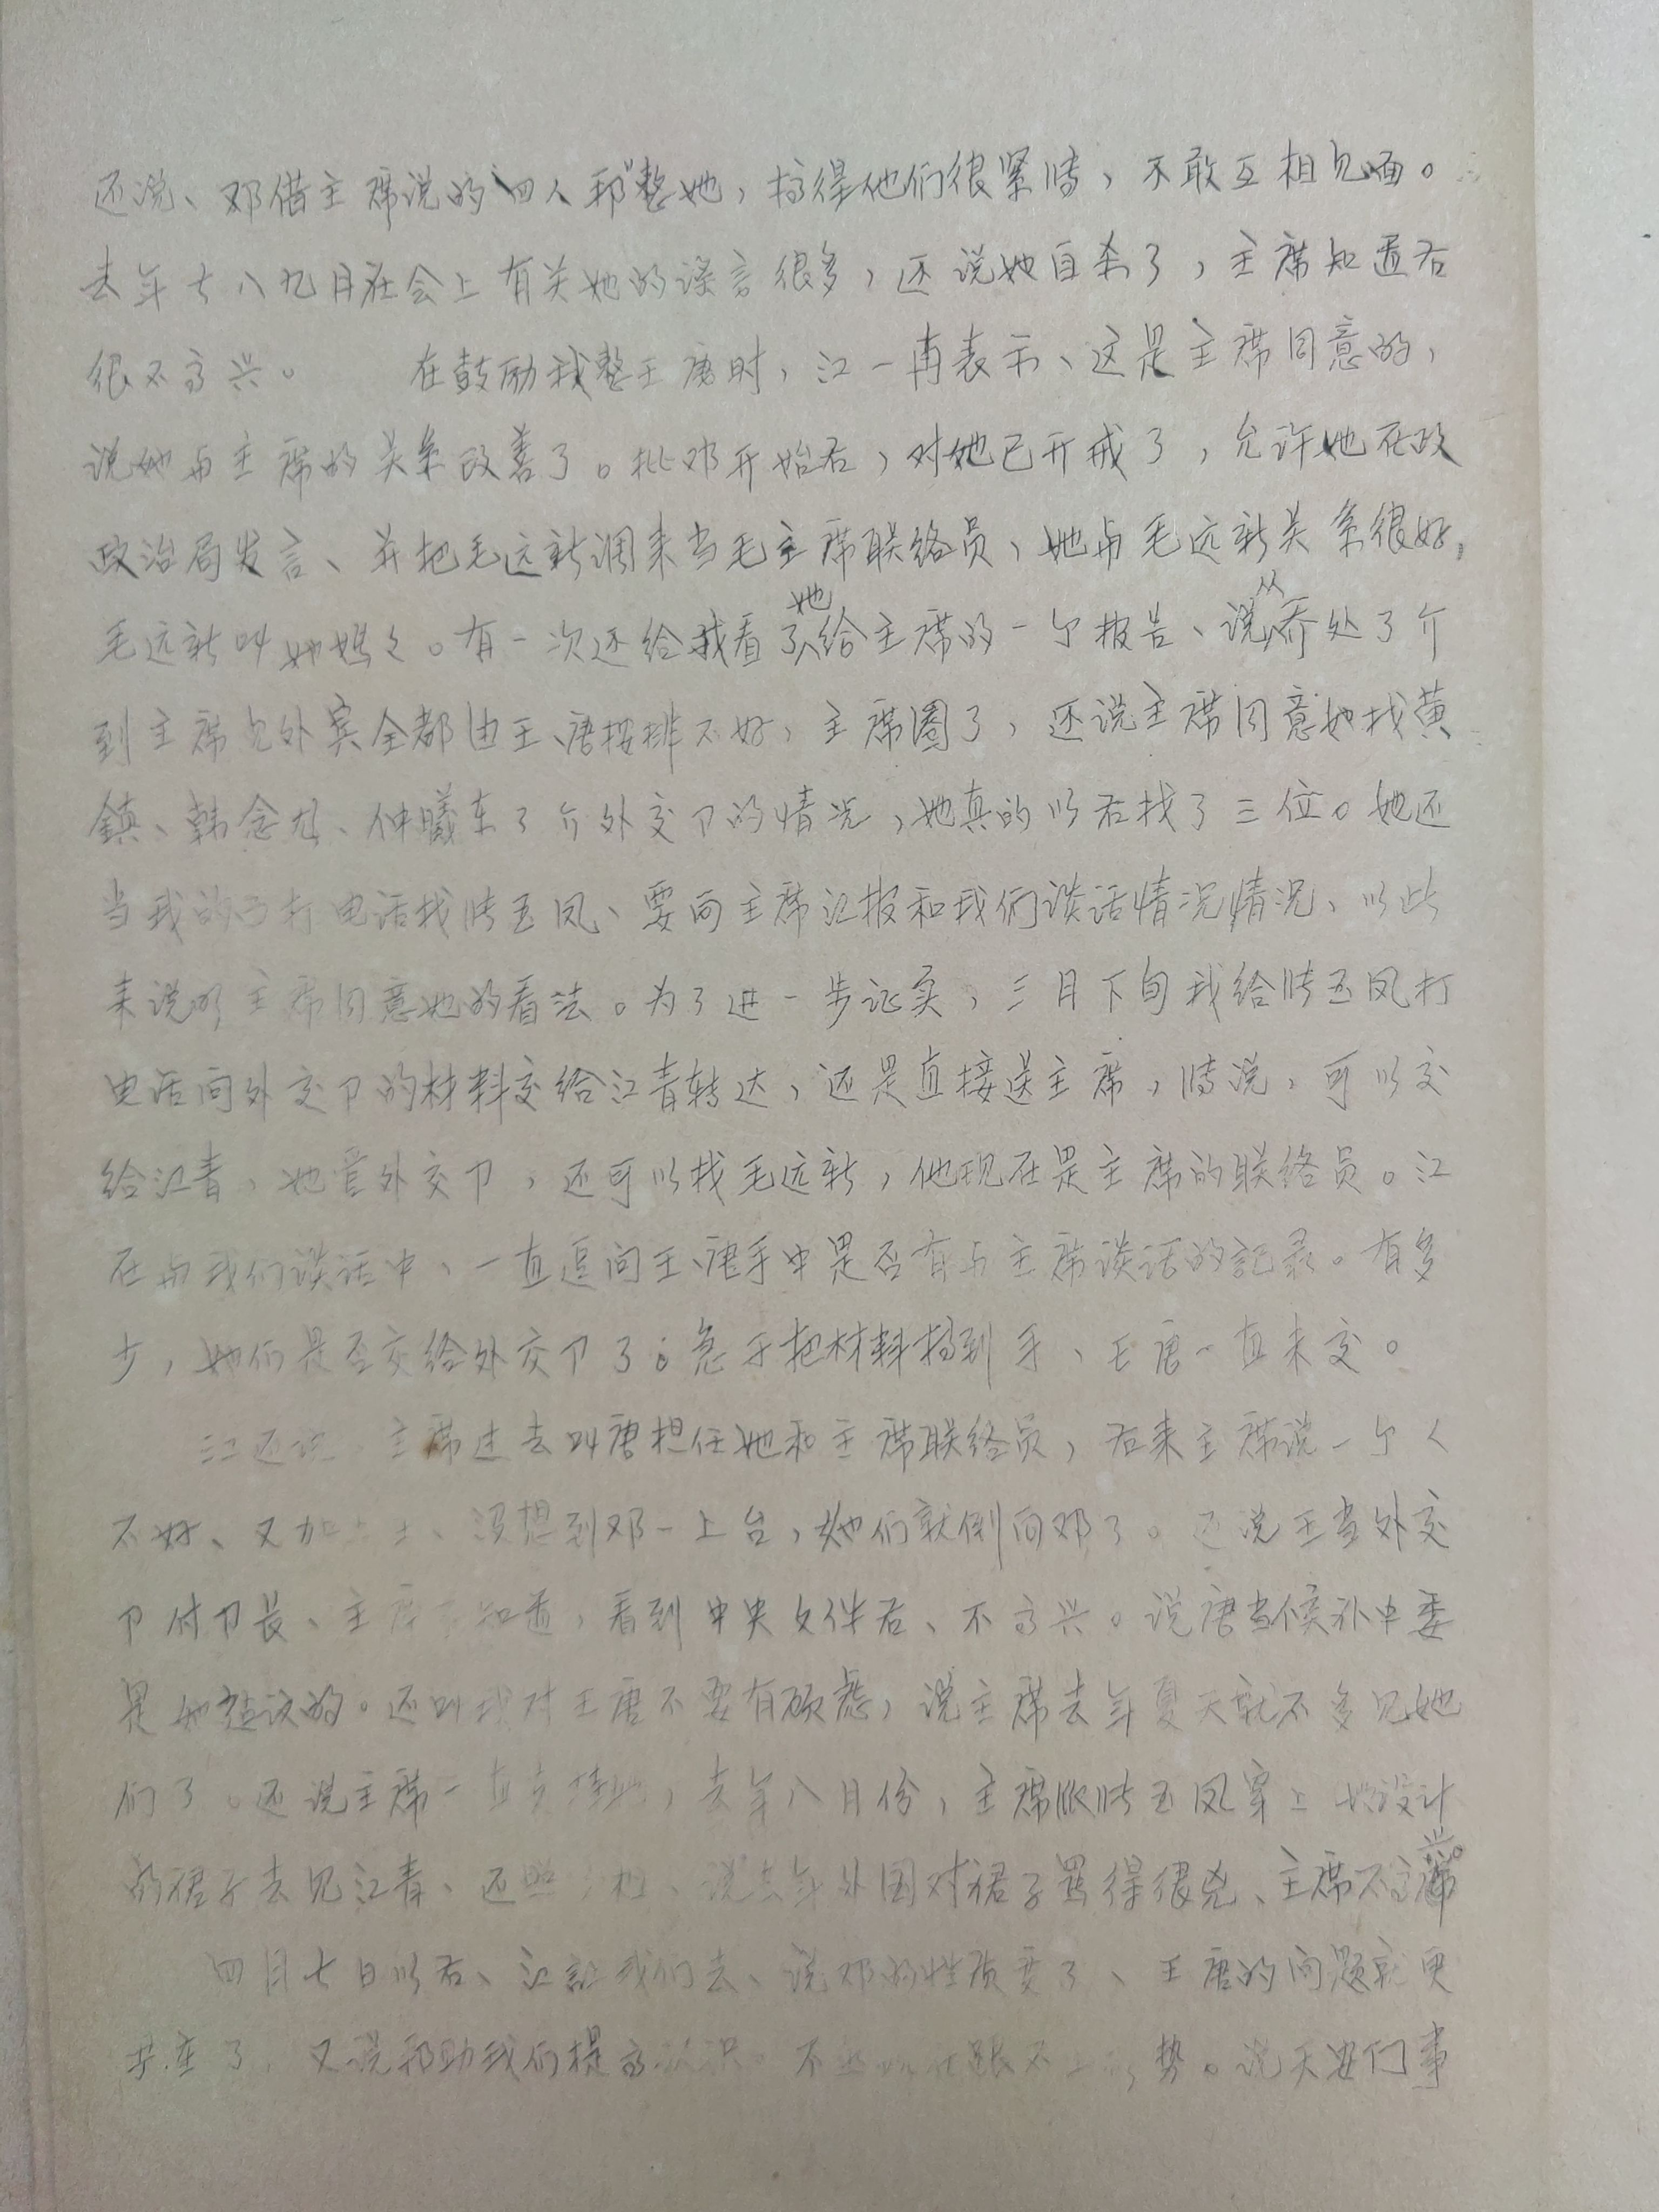 还说、邓借主席说的“四人邦”整她，搞得他们很紧张，不敢互相见面。
去年七八九月在会上有关她的谣言很多，还说她自杀了，主席知道后
很不高兴。　　在鼓励我整王唐时，江一再表示、这是主席同意的，
说她与主席的关系改善了。批邓开始后，对她已开戒了，允许她在政
政治局发言、并把毛远新调来当毛主席联络员，她与毛远新关系很好，
毛远新叫她妈々。有一次还给我看了她给主席的一个报告、说从乔处了介
到主席见外宾全都由王、唐按排不好，主席圈了，还说主席同意她找黄
鎮、韩念龙、仲曦东了介外交卩的情况，她真的以后找了三位。她还
当我的面打电话找张玉凤、要向主席汇报和我们谈话情况情况、以此
来说明主席同意她的看法。为了进一步证实，三月下旬我给张玉凤打
电话问外交卩的材料交给江青转达，还是直接送主席，张说，可以交
给江青，她管外交卩，还可以找毛远新，他现在是主席的联络员。江
在与我们谈话中、一直追问王、唐手中是否有与主席谈话的記录。有多
少，她们是否交给外交卩了。急于把材料搞到手、王唐一直未交。
江还说 主席过去叫唐担任她和主席联络员，后来主席说一个人
不好、又加上王、没想到邓一上台，她们就倒向邓了。还说王当外交
卩付卩长、主席不知道，看到中央文件后、不高兴。说唐当候补中委
是她建议的。还叫我对王唐不要有顾虑，说主席去年夏天就不多见她
们了。还说主席一直支持她，去年八月份，主席派张玉凤穿上她设计
的裙子去见江青、还照了相、说去年外国对裙子骂得很兇、主席不高兴。
四月七日以后、江記我们去、说邓的性质变了、王唐的问题就更
了，又说邦助我们提高认识。不 跟不上形势。说天安门事